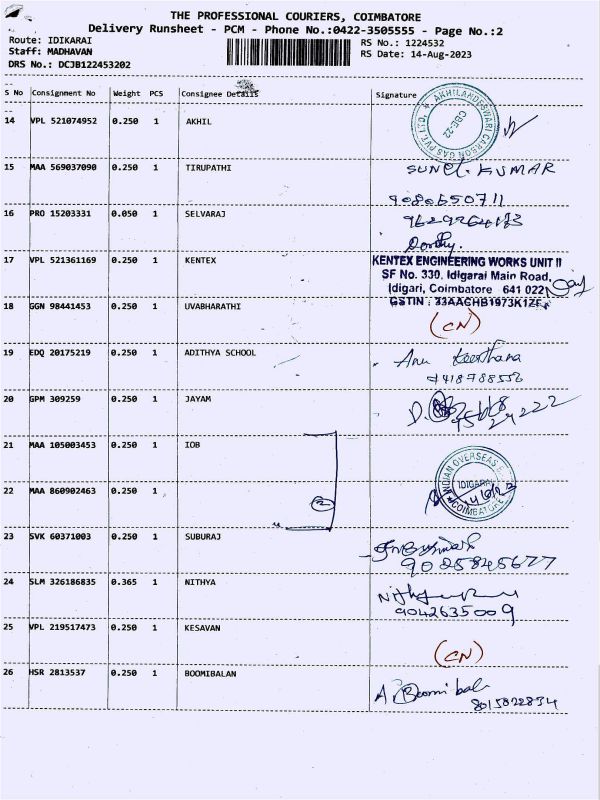 THE PROFESSIONAL COURIERS, COIMBATORE
Delivery Runsheet - PCM - Phone No.:0422-3505555 - Page No.:2
Route: IDIKARAI
Staff: MADHAVAN
DRS No.: DCJB122453202
RS No.: 1224532
RS Date: 14-Aug-2023
S No Consignment No Weight PCS Consignee Details Signature
14 VPL 521074952 0.250 1 AKHIL
AKHILANDESWARI CARBON GAS PVT. LTD. ★
CBE-22
15 MAA 569037090 0.250 1 TIRUPATHI SUNEL KUMAR
9080650711
16 PRO 15203331 0.050 1 SELVARAJ
17 VPL 521361169 0.250 1 KENTEX KENTEX ENGINEERING WORKS UNIT II
SF No. 330, Idigarai Main Road,
Idigari, Coimbatore 641 022
GSTIN : 33AACHB1973K1ZF
18 GGN 98441453 0.250 1 UVABHARATHI (CN)
19 EDQ 20175219 0.250 1 ADITHYA SCHOOL Anu Keerthana
9418788556
20 GPM 309259 0.250 1 JAYAM
21 MAA 105003453 0.250 1 IOB
INDIAN OVERSEAS
IDIGARAI
COIMBATORE
22 MAA 860902463 0.250 1 2
23 SVK 60371003 0.250 1 SUBURAJ
9025845677
24 SLM 326186835 0.365 1 NITHYA
9042635009
25 VPL 219517473 0.250 1 KESAVAN (CN)
26 HSR 2813537 0.250 1 BOOMIBALAN A. Boomi bal
8015822834